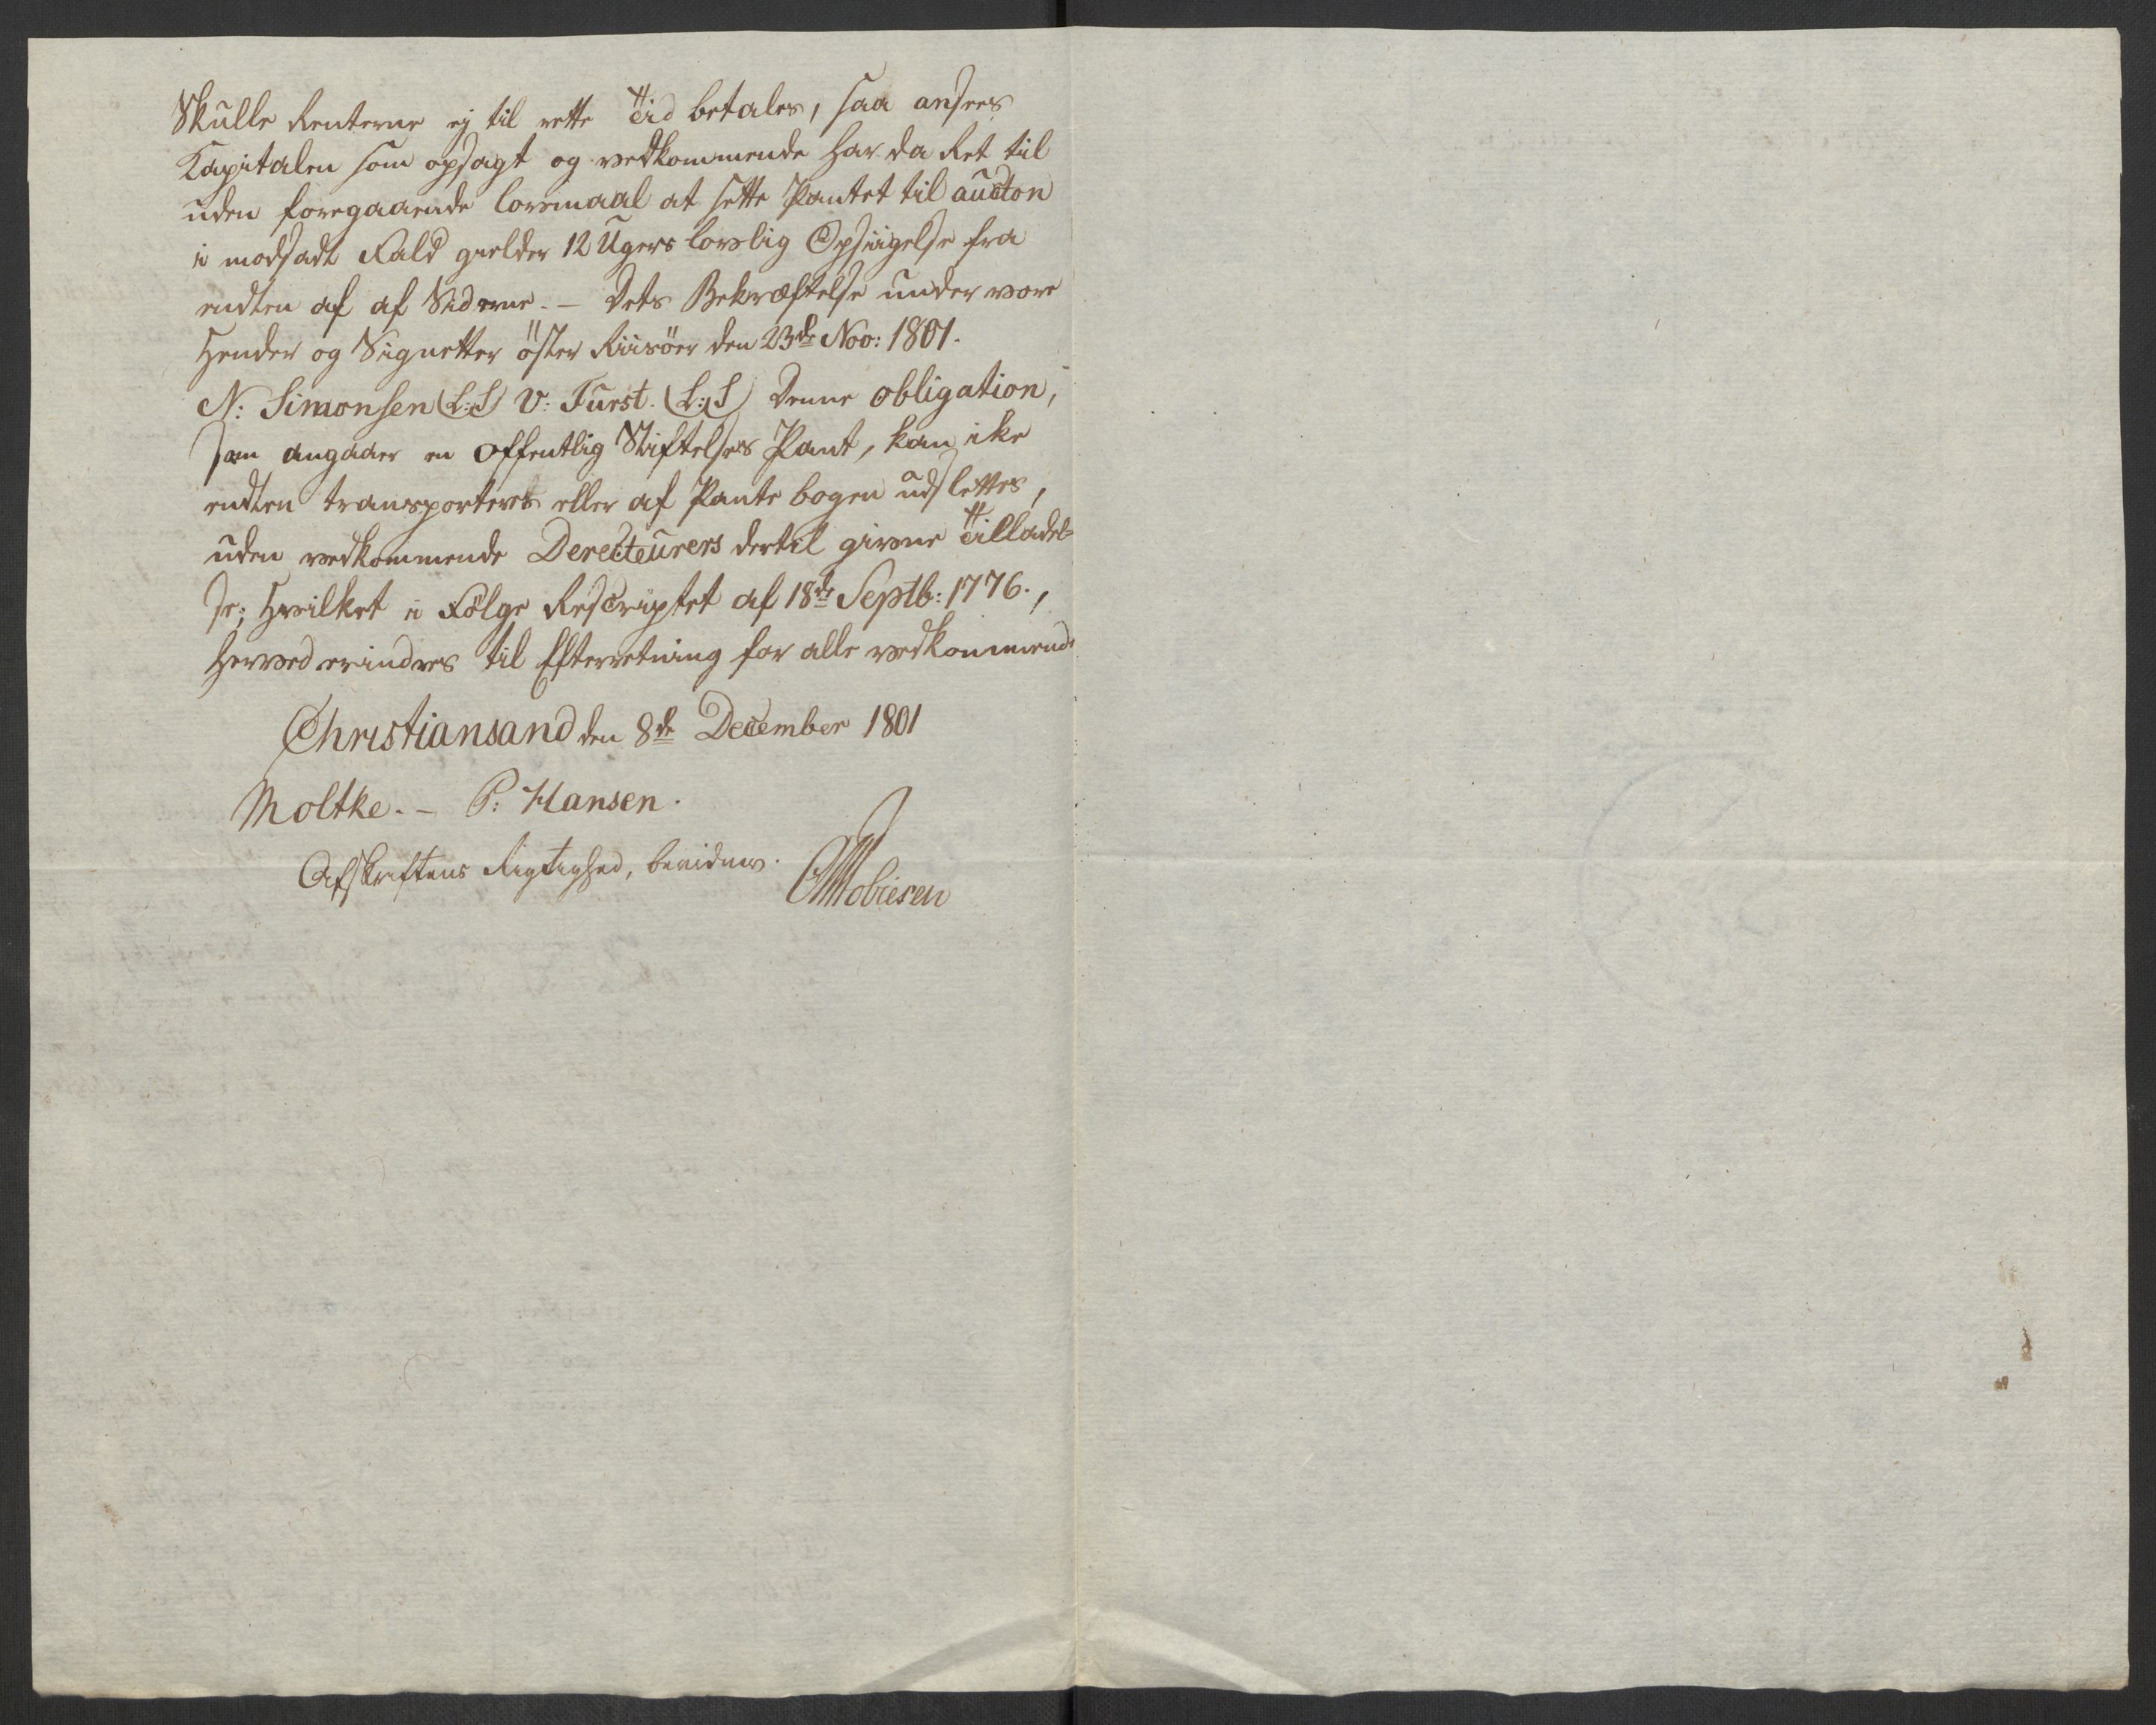 Skulle Renterne ej til rette Tiid betales, saa ansees
Kapitalen som opsagt og vedkommende har da Ret til
uden foregaaende lovmaal at sette Pantet til auction
i modsadt Fald gielder 12 Ugers lovlig Opsiigelse fra
endten af af Siderne. – Dets Bekræftelse under vore
Hender og Signetter öster Riisöer den 23de Nov: 1801.
N: Simonsen (L:S) V: Furst. (L:S) Denne obligation,
som angaaer en offentlig Stiftelses Pant, kan ike
endten transporteres eller af Pante bogen udslettes,
uden vedkommende Derecteurers dertil givne Tilladel-
se; Hvilket i Fölge Rescriptet af 18de Septb: 1776.,
herved erindres til Efterretning for alle vedkommende
Christiansand den 8de December 1801
Moltke. – P: Hansen.
Afskriftens Rigtighed, bevidner.